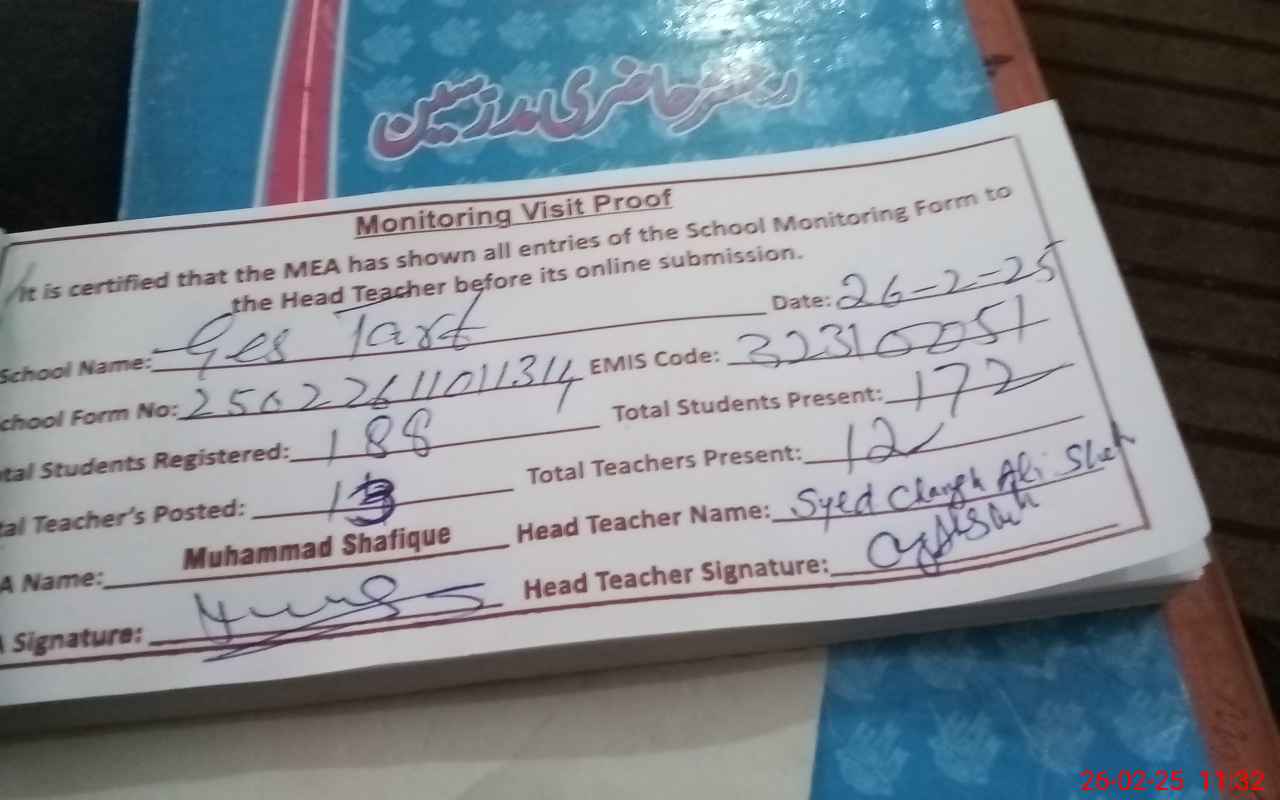 رجسٹر حاضری مدرسین
Monitoring Visit Proof
It is certified that the MEA has shown all entries of the School Monitoring Form to
the Head Teacher before its online submission.
School Name: Ges Date: 26-2-25
chool Form No: EMIS Code: 323102051
tal Students Registered: 188 Total Students Present: 172
tal Teacher's Posted: 13 Total Teachers Present: 12
A Name: Muhammad Shafique Head Teacher Name: Syed Ali Shah
Signature: Head Teacher Signature:
26-02-25 11:32